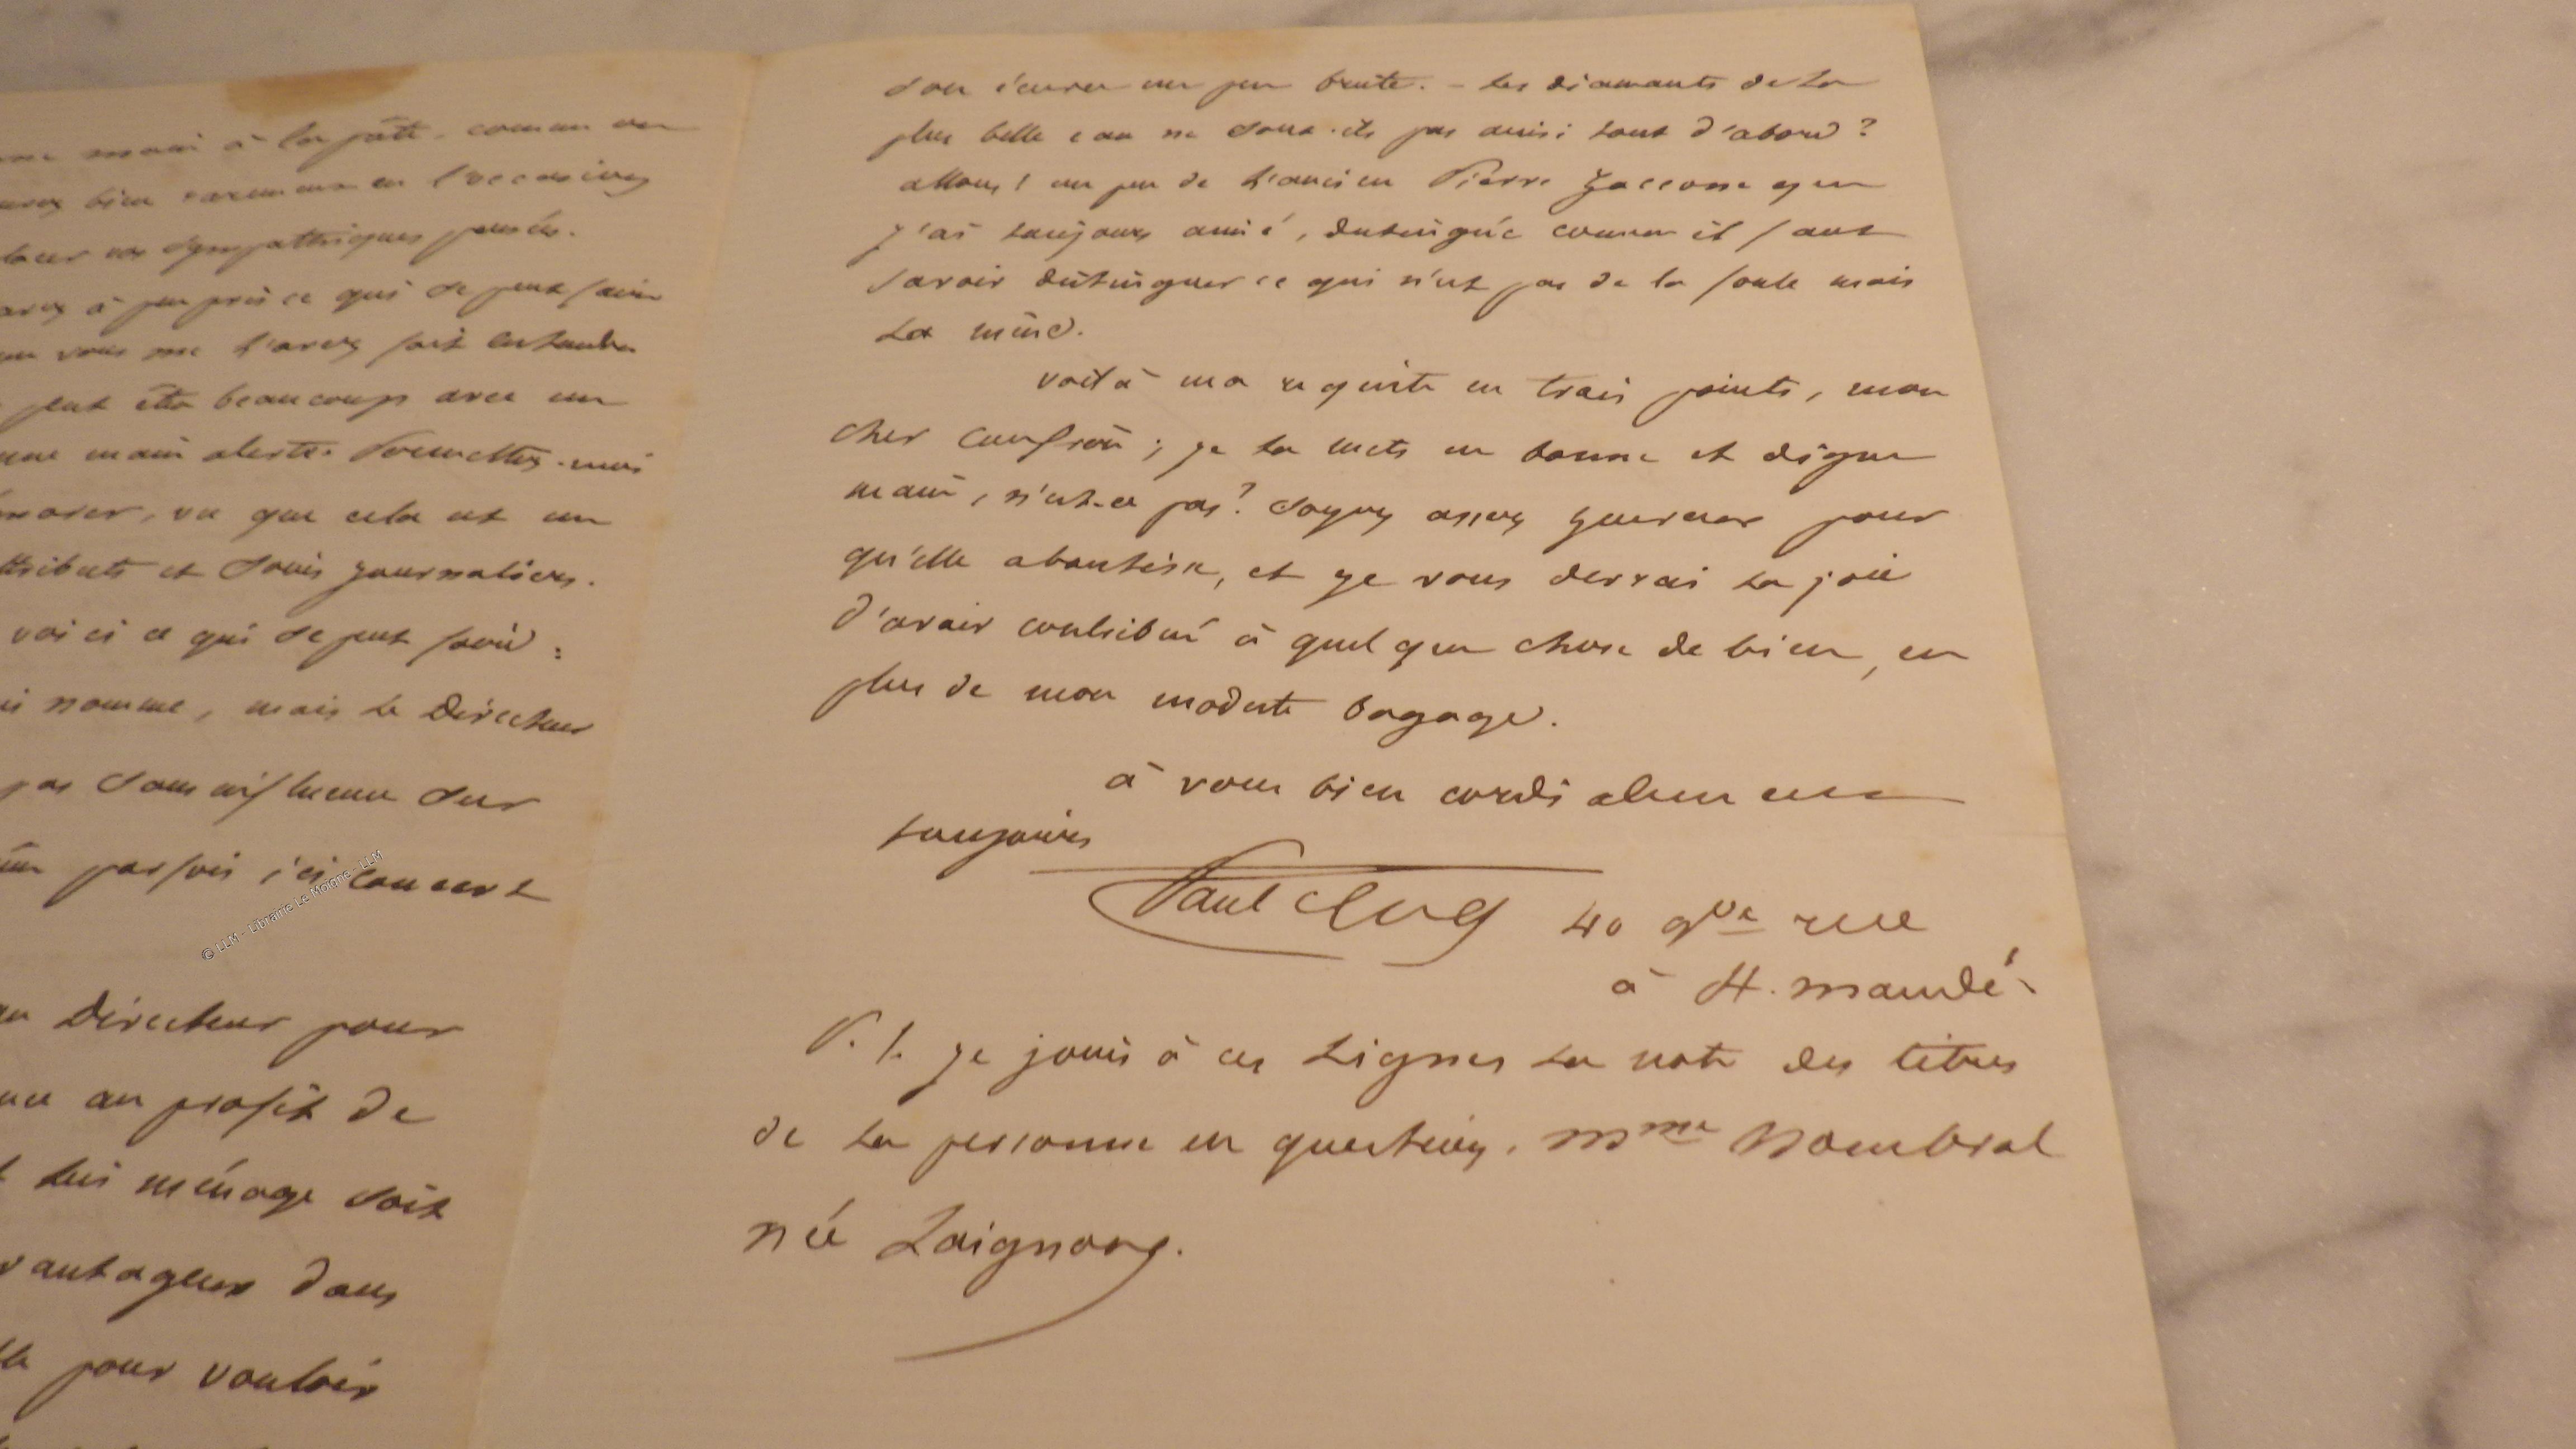 main à la pâte. comme on
bien rarement en l'occasion
vos sympathiques pensées.
à peu près ce qui se peut faire
vous me l'avez fait entendre
peut être beaucoup avec un
main alerte. Soumettez-moi
vu que cela est un
attributs et soucis journaliers.
voici ce qui se peut faire :
nomme, mais le Directeur
pas sans influence sur
parfois ici concert
Directeur pour
au profit de
lui ménage soit
avantageux dans
pour vouloir
son écorce un peu brute. - les diamants de la
plus belle eau ne sont-ils pas ainsi tout d'abord ?
allons ! un peu de l'ancien Pierre Zaccone que
j'ai toujours aimé, distingué comme il faut
savoir distinguer ce qui n'est pas de la foule mais
la mène.
voilà ma requête en trois points, mon
cher confrère ; je la mets en bonne et digne
main, n'est-ce pas ? Soyez assez généreux pour
qu'elle aboutisse, et je vous devrai la joie
d'avoir contribué à quelque chose de bien, en
plus de mon modeste bagage.
à vous bien cordialement
toujours
Paul Clug 40 gde rue
à St. mandé.
P. S. je joins à ces lignes la note des titres
de la personne en question. Mme Nombral
née Laignoux.
© LLM - Librairie Le Moigne - LLM